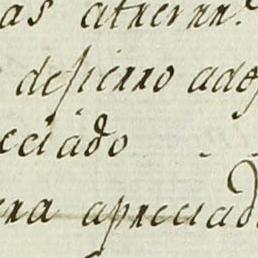 as
desierro ados
cciado
era apreciad